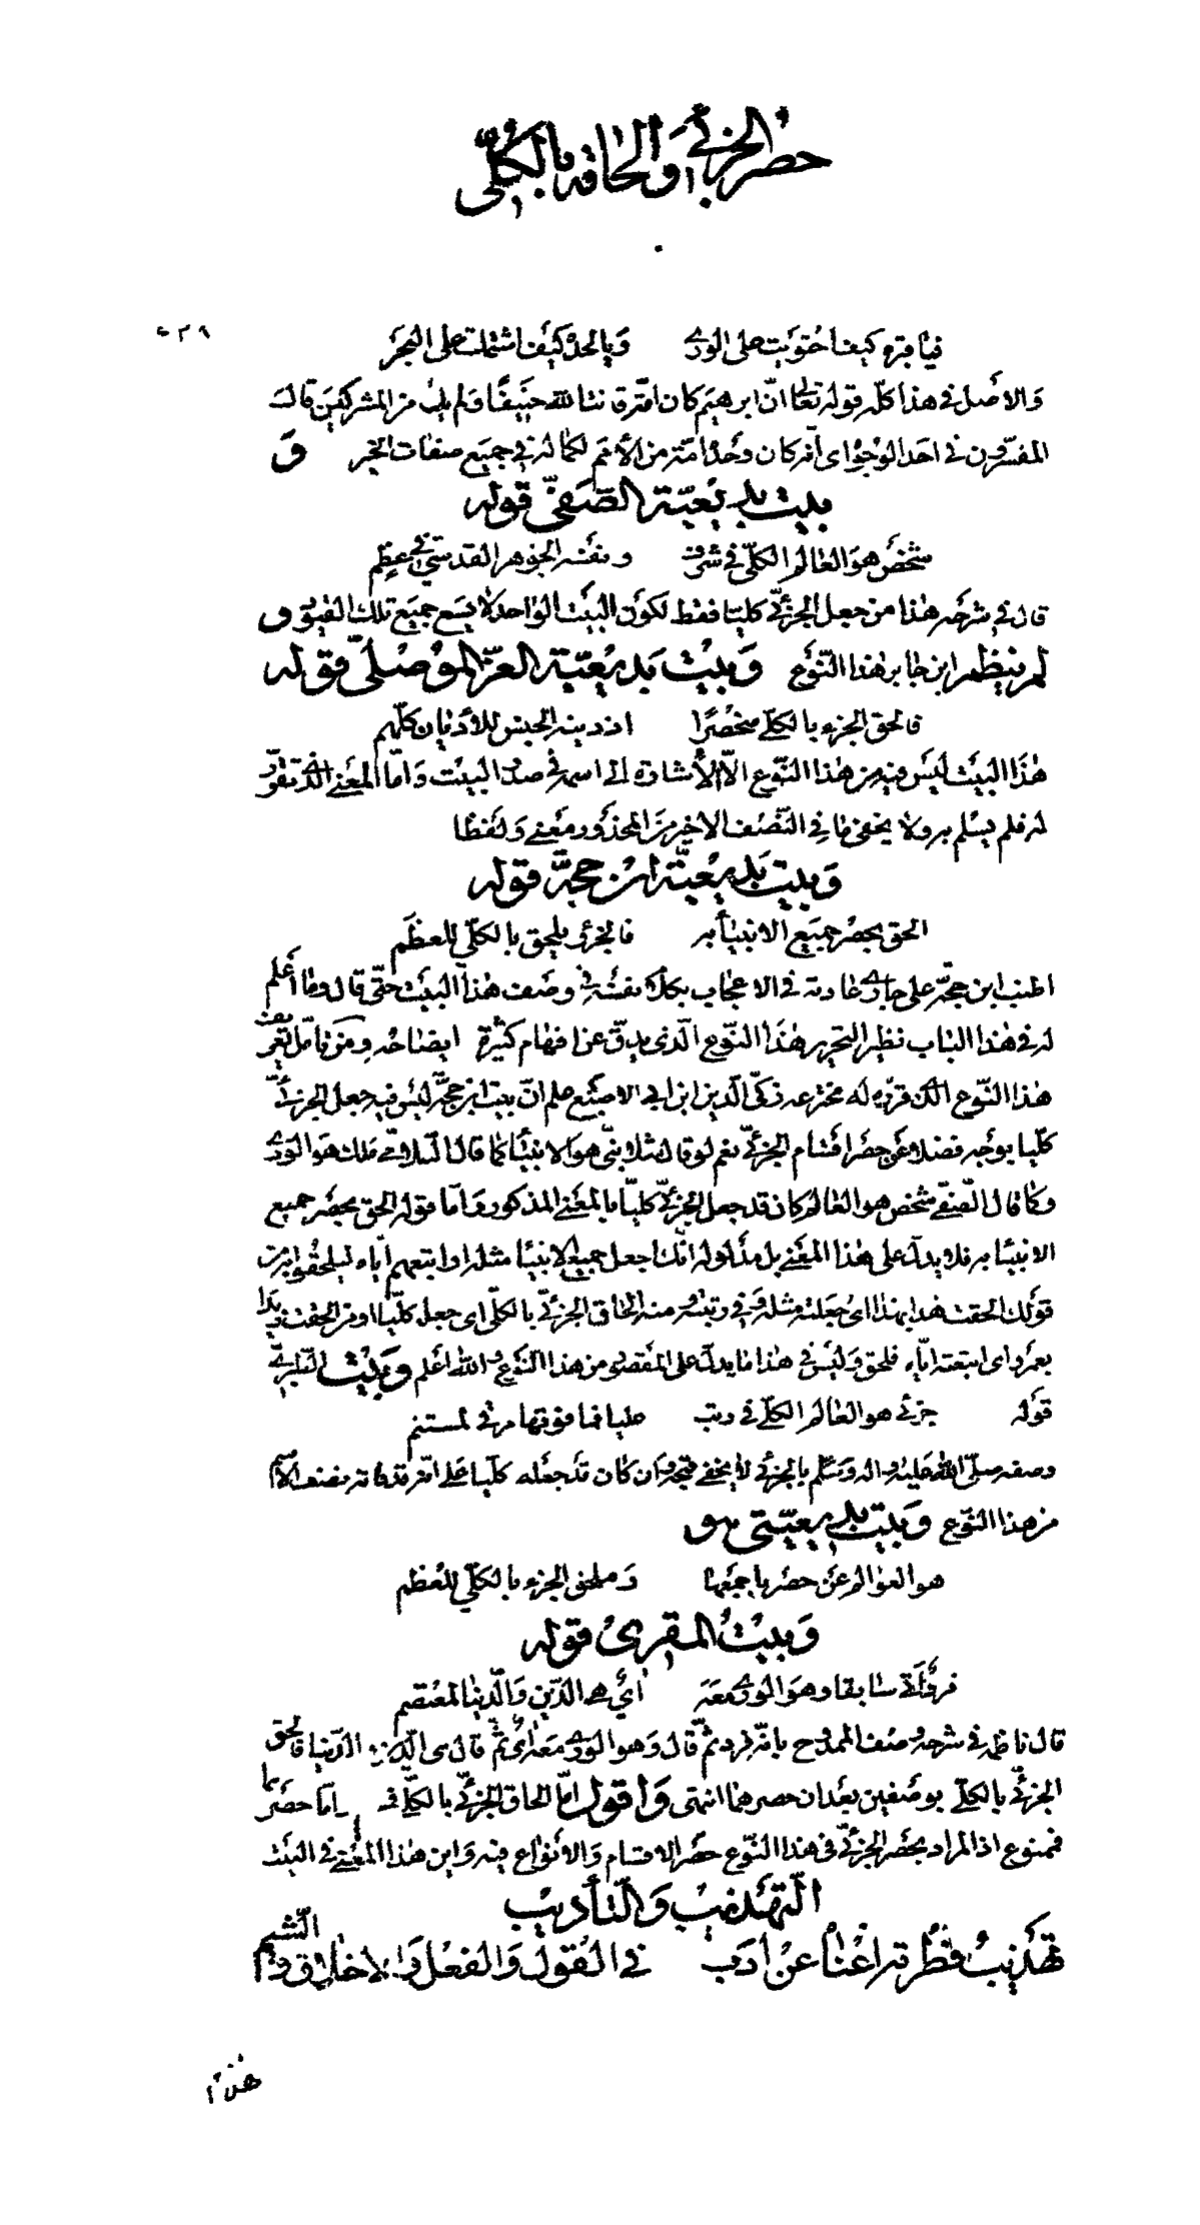 حصر الجزئي والحاقه بالكلّي
٦٣٩
فيا قبره كيف احتويت على الورى وَيا لحد كيف اشتملت على البحر
وَالاصل في هذا كلّه قوله تعالى انّ ابرهيم كان امّة قانتا لله حنيفًا وَلم يك من المشركين قالت
المفسّرون في احد الوجوه اي انّه كان وحده امّة من الأمم لكماله في جميع صفات الخير وَ
بيت بديعيّة الصّفيّ قوله
شخصٌ هوَ العالم الكلّي في شرف ونفسه الجوهر القدسيّ في عظم
قال في شرحه هذا من جعل الجزئيّ كليّا فقط لكون البيت الواحد لا يسع جميع تلك القيود و
لم ينظم ابن جابر هذا النّوع وَبيت بديعيّة العزّ الموصليّ قوله
فالحق الجزء بالكلّي منحصرًا اذ دينه الجنس للأديان كلّهم
هذا البيت ليس فيه من هذا النّوع الّا الأشارة الى اسمه في صدر البيت وَامّا المعنى الّذي تقرّر
له فلم يسلم به ولا يخفى ما في النّصف الاخير من المحذور معنى وَلفظا
وَبيت بديعيّة ابن حجّة قوله
الحق بحصر جميع الانبيا به فالجزئ يلحق بالكلّي للعظم
اطنب ابن حجّة على جاري عادته في الاعجاب بكلام نفسه في وصف هذا البيت حتّى قال وما اعلم
له في هذا الباب نظير التحرير هذا النّوع الّذي يدقّ عن افهام كثيرة ايضاحه ومن تأمّل تعريف
هذا النّوع الّذي قرّره له مخترعه زكيّ الدّين ابن ابي الاصبع علم انّ بيت ابن حجّة ليس فيه جعل الجزئيّ
كلّيا بوجه فضلا عن حصر اقسام الجزئيّ نعم لو قال مثلا نبيّ هو الانبيا كما قال السّلاميّ ملك هو الورى
وكما قال الصّفيّ شخص هو العالم كان قد جعل الجزئيّ كليّا بالمعنى المذكور وَامّا قوله الحق بحصر جميع
الانبيا به فلا يدلّ على هذا المعنى بل مدلوله انّك اجعل جميع الانبيا مثله او اتبعهم ايّاه ليلحقوا به من
قولك الحقت هذا بهذا اي جعلته مثله في رتبته ومنه الحاق الجزئيّ بالكلّي اي جعله كلّيا او من الحقت زيدا
بعمرو اي اتبعته ايّاه فلحق وَليس في هذا ما يدلّ على المقصود من هذا النّوع والله اعلم وَبيت الطّبريّ
قوله جزئ هو العالم الكلّي في رتب عليا فما فوقها مرقى لمستنم
وصفه صلّى الله عليه واله وسلّم بالجزئ لا يخفى قبحه وان كان قد جعله كليّا على انّه قد فاته نصف الاسم
من هذا النّوع وَبيت بديعيّتي هو
هو العوالم عن حصر باجمعها وَملحق الجزء بالكلّي للعظم
وَبيت المقري قوله
فردٌ له سابقا وهو الورى معه اي هم الدّين وَالدّنيا لمعتصم
قال ناظمه في شرحه وصف الممدوح بانّه فرد ثمّ قال وَهو الورى معه اي ثمّ قال الدّين الدّنيا فالحق
الجزئيّ بالكلّي بوصفين بعد ان حصرهما انتهى وَاقول امّا الحاق الجزئيّ بالكلّي امّا حصرهما
فممنوع اذ المراد بحصر الجزئيّ في هذا النّوع حصر الاقسام وَالأنواع فيه وَاين هذا المعنى في البيت
التّهذيب وَالتّأديب
تهذيب فطرته اغناه عن ادب في القول وَالفعل وَالاخلاق وَالشّيم
هذا